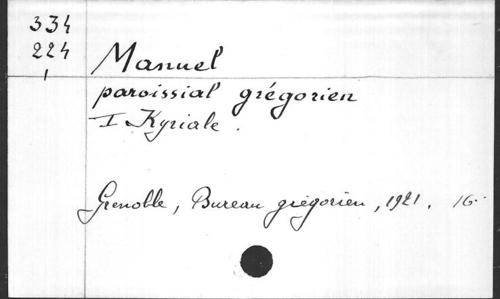 334
224
1
Manuel
paroissial grégorien
I Kyriale.
Grenoble, Bureau grégorien, 1921. 16°